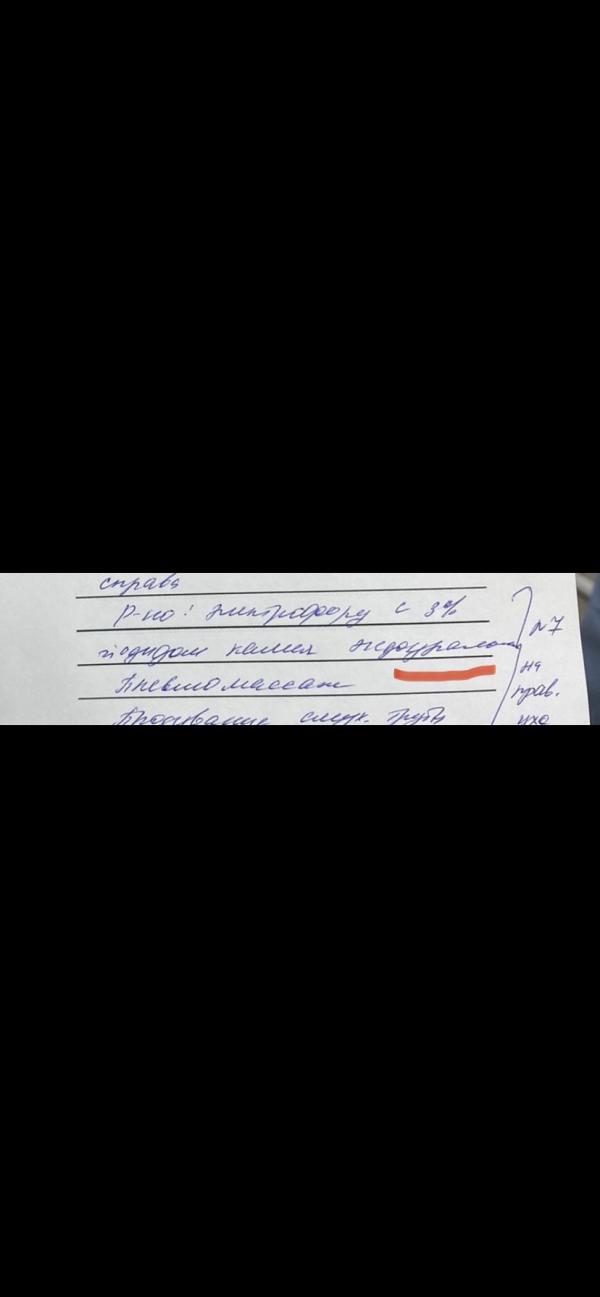 справа
Р-но: электрофорез с 3%
йодидом калия эндаурально
Пневмомассаж
Продувание слух. трубы
№7
на
прав.
ухо